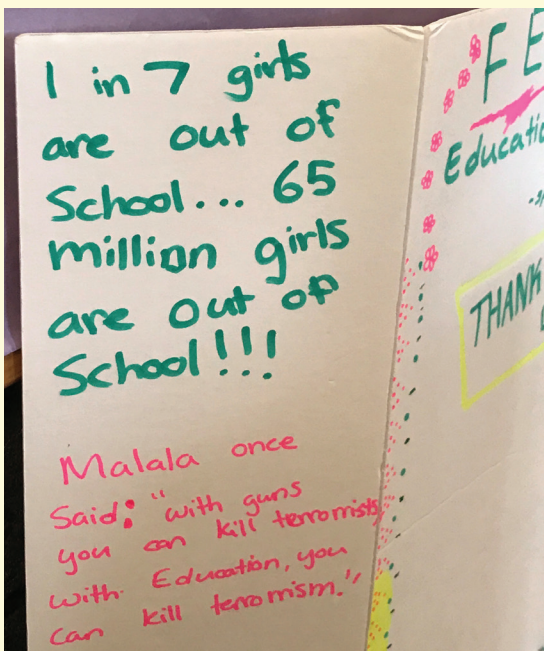 1 in 7 girls
are out of
School... 65
million girls
are out of
School!!!
Malala once
Said: "with guns
you can kill terromists,
with Education, you
can kill terromism."
FE
Educatio
THANK